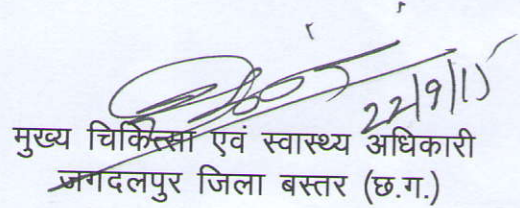 22/9/15
मुख्य चिकित्सा एवं स्वास्थ्य अधिकारी
जगदलपुर जिला बस्तर (छ.ग.)